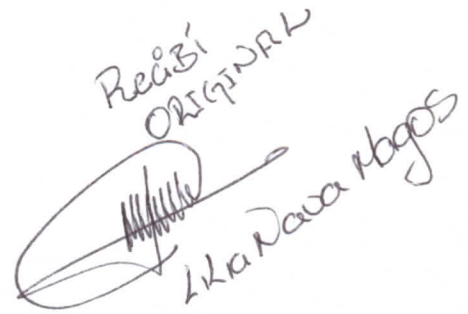 Recibí
ORIGINAL
Lilia Nava Magos